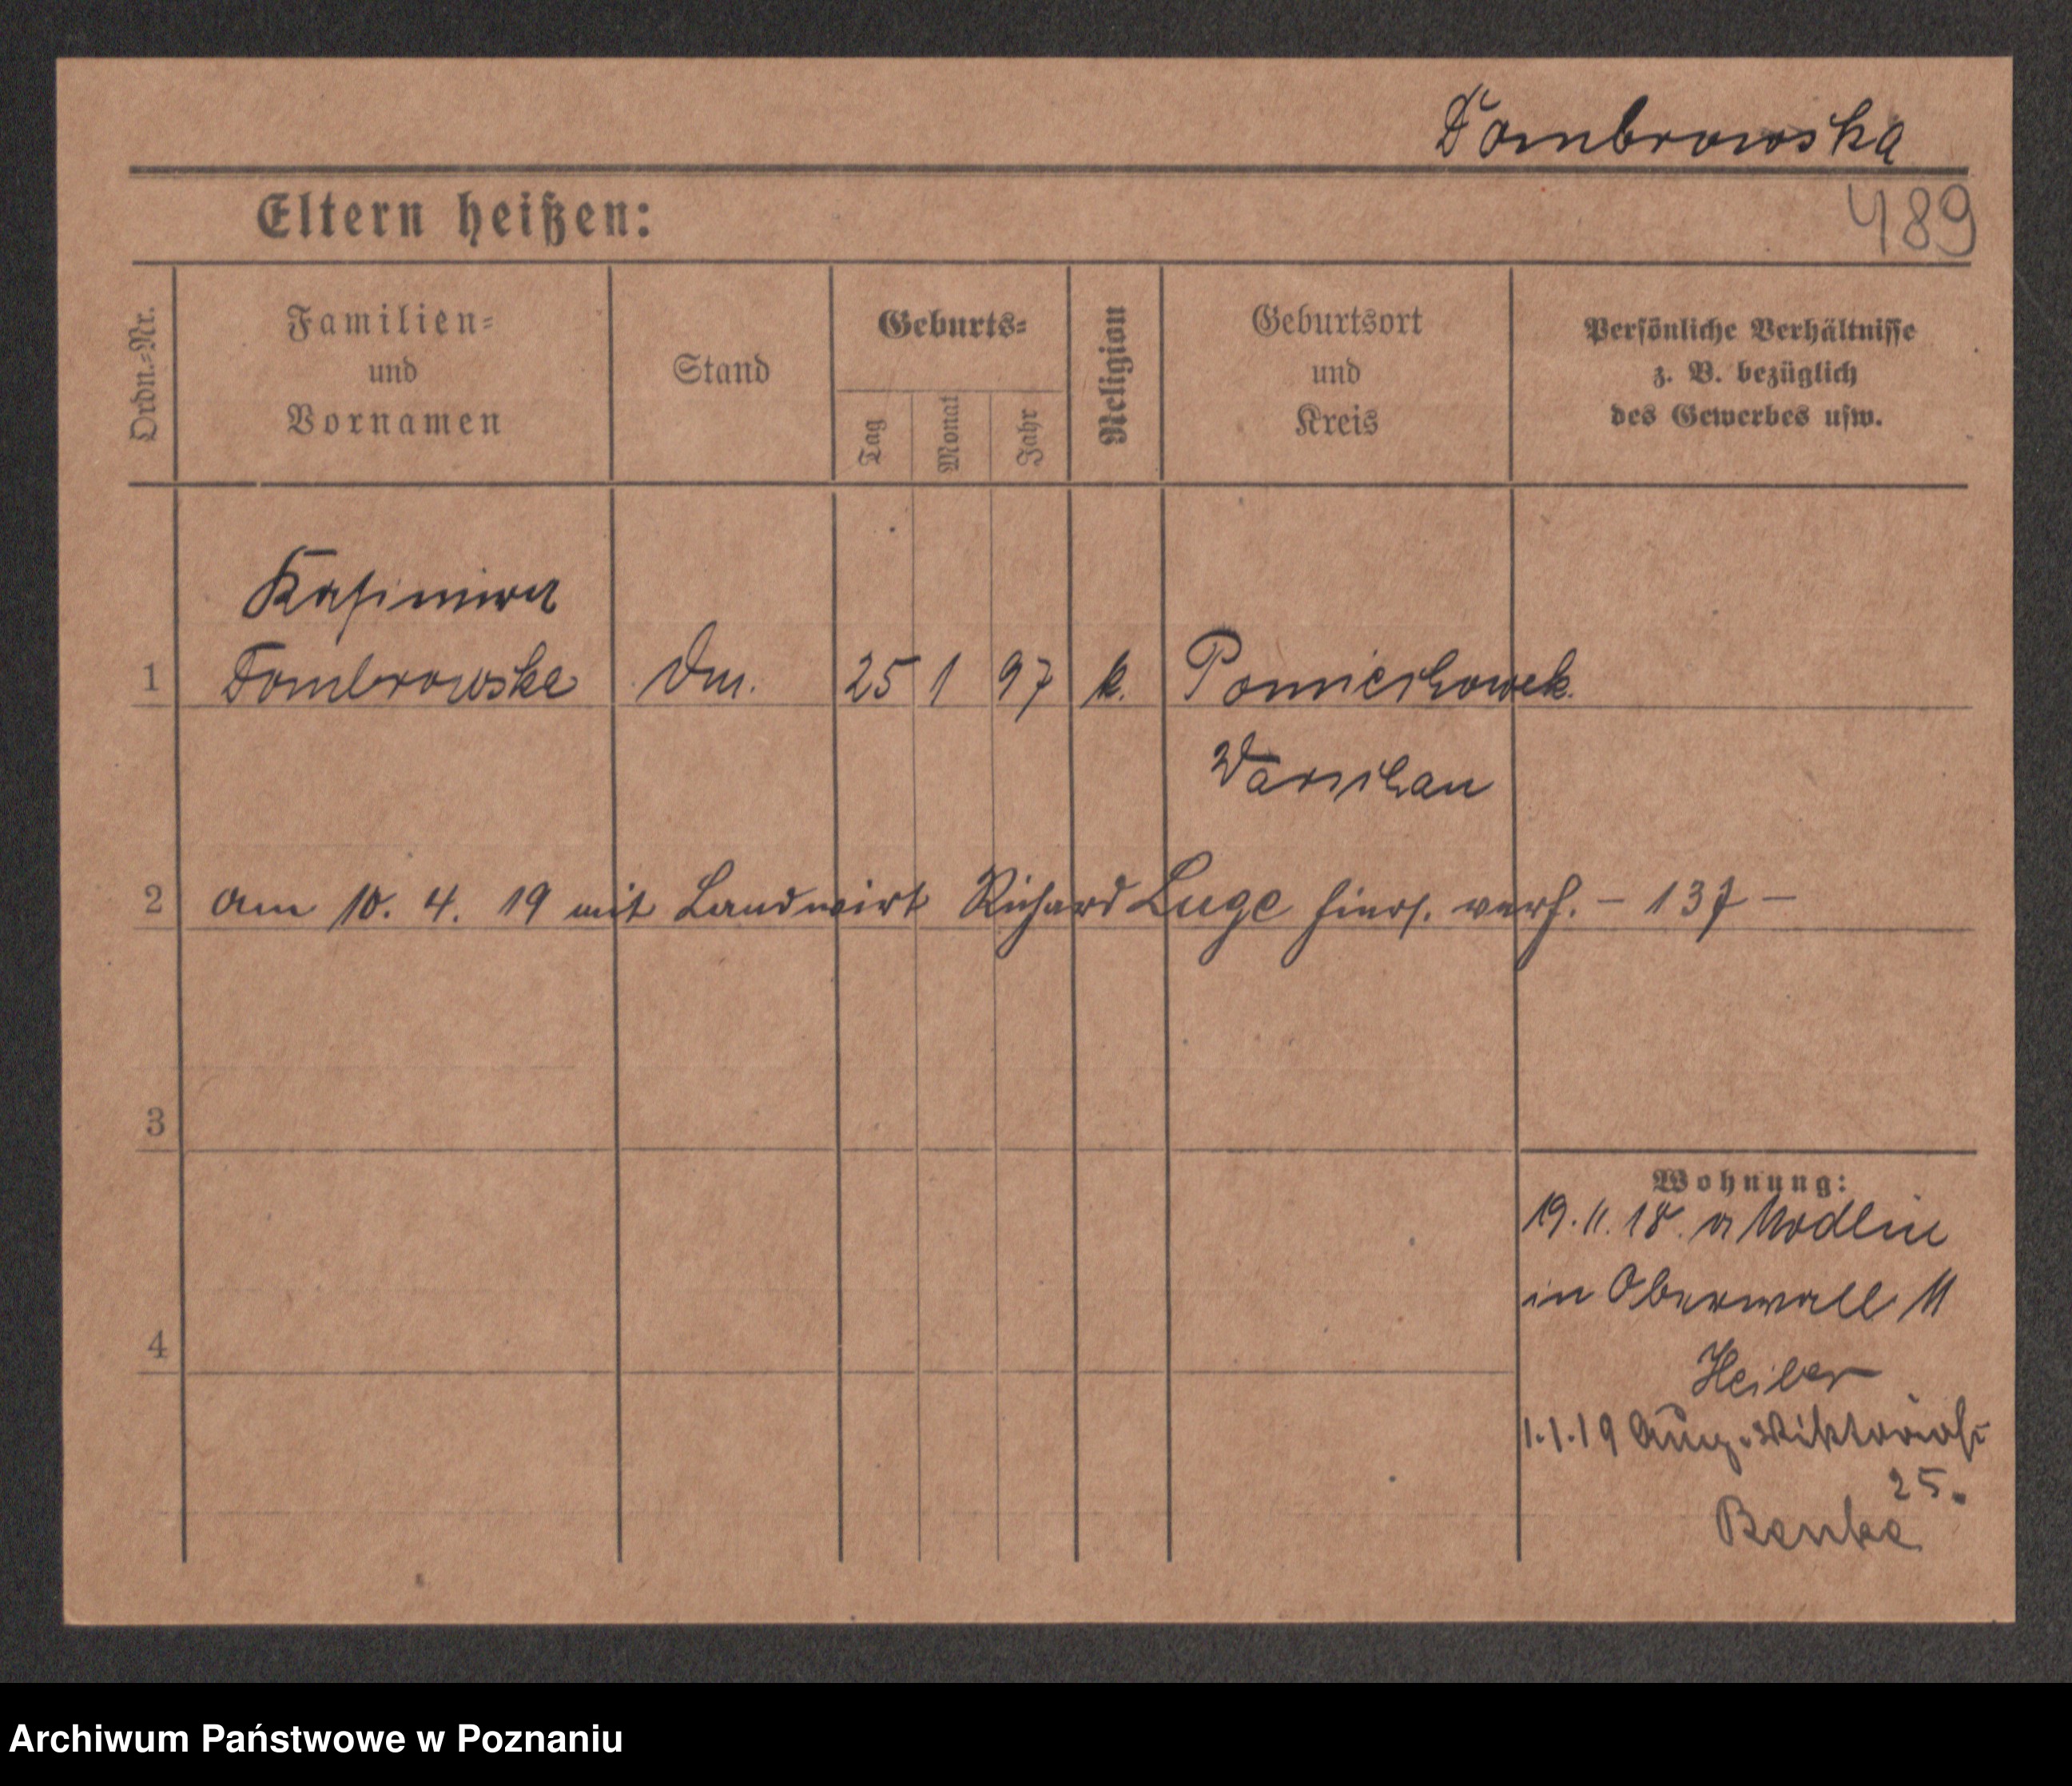 Dombrowska
489
Eltern heißen:
Ordn.=Nr.
Familien=
und
Vornamen
Stand
Geburts=
Tag
Monat
Jahr
Religion
Geburtsort
und
Kreis
Persönliche Verhältnisse
z. B. bezüglich
des Gewerbes usw.
Kasimira
1 Dombrowska 25 1 97 k. Pomiechowek.
Warschau
2 am 10. 4. 19 mit Landwirt Richard Luge hiers. verh. – 137 –
3
Wohnung:
19. 11. 18. a Modlin
in Oberwall 11
4
Heiber
1.1.19 Aug. Viktoriastr
25.